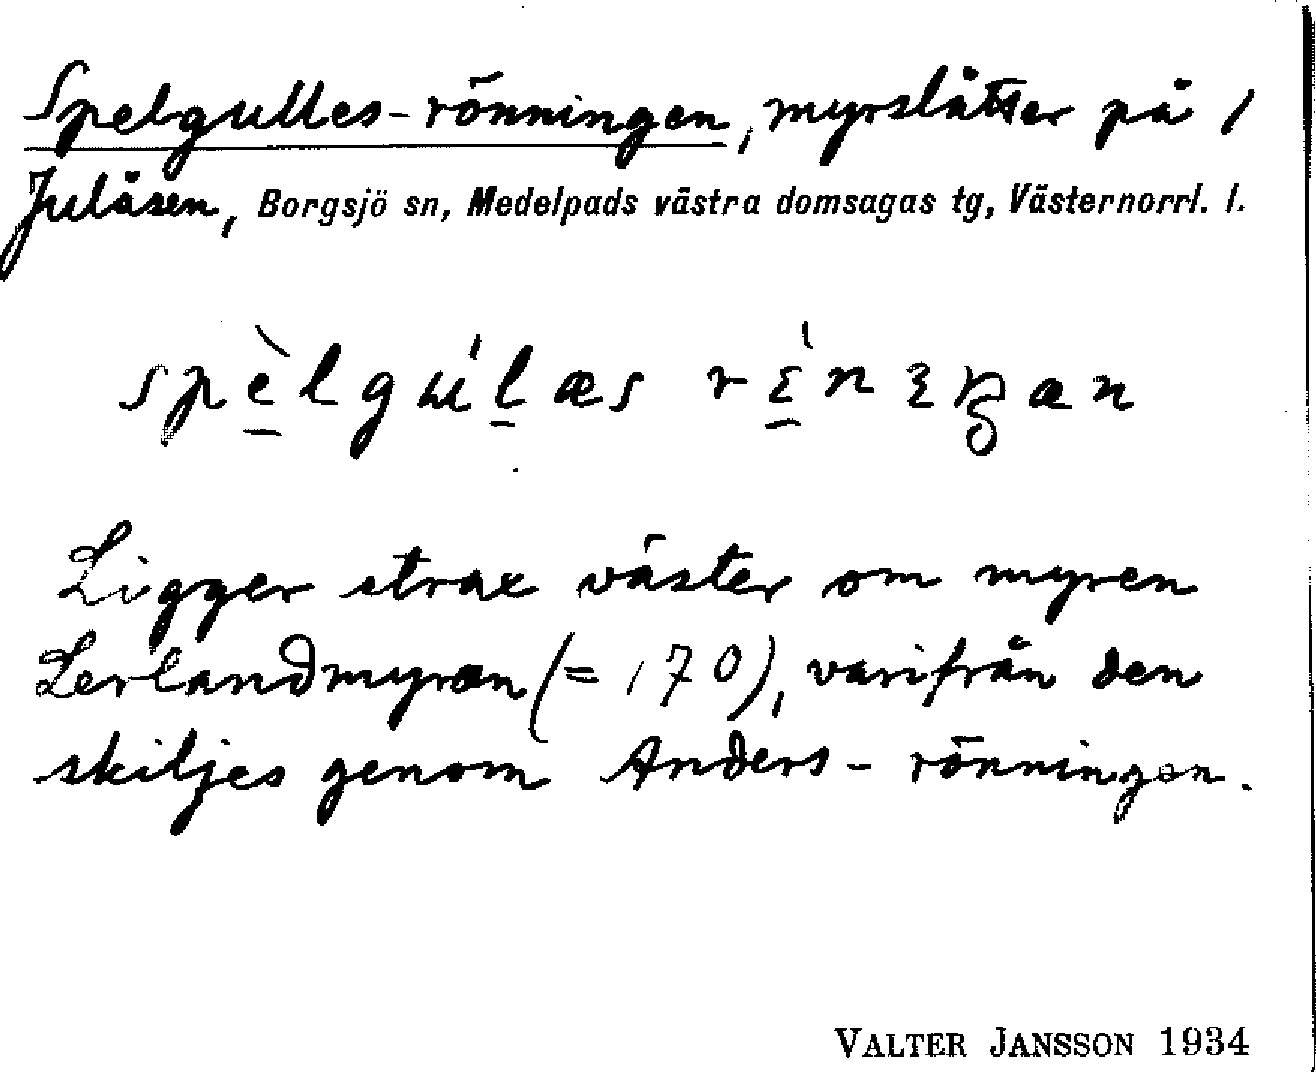 Spelgulles-rönningen, myrslåtter på /
Julåsen, Borgsjö sn, Medelpads västra domsagas tg, Västernorrl. l.
Ligger strax väster om myren
Lerlandmyran (= 170), varifrån den
skiljes genom Anders-rönningen.
VALTER JANSSON 1934